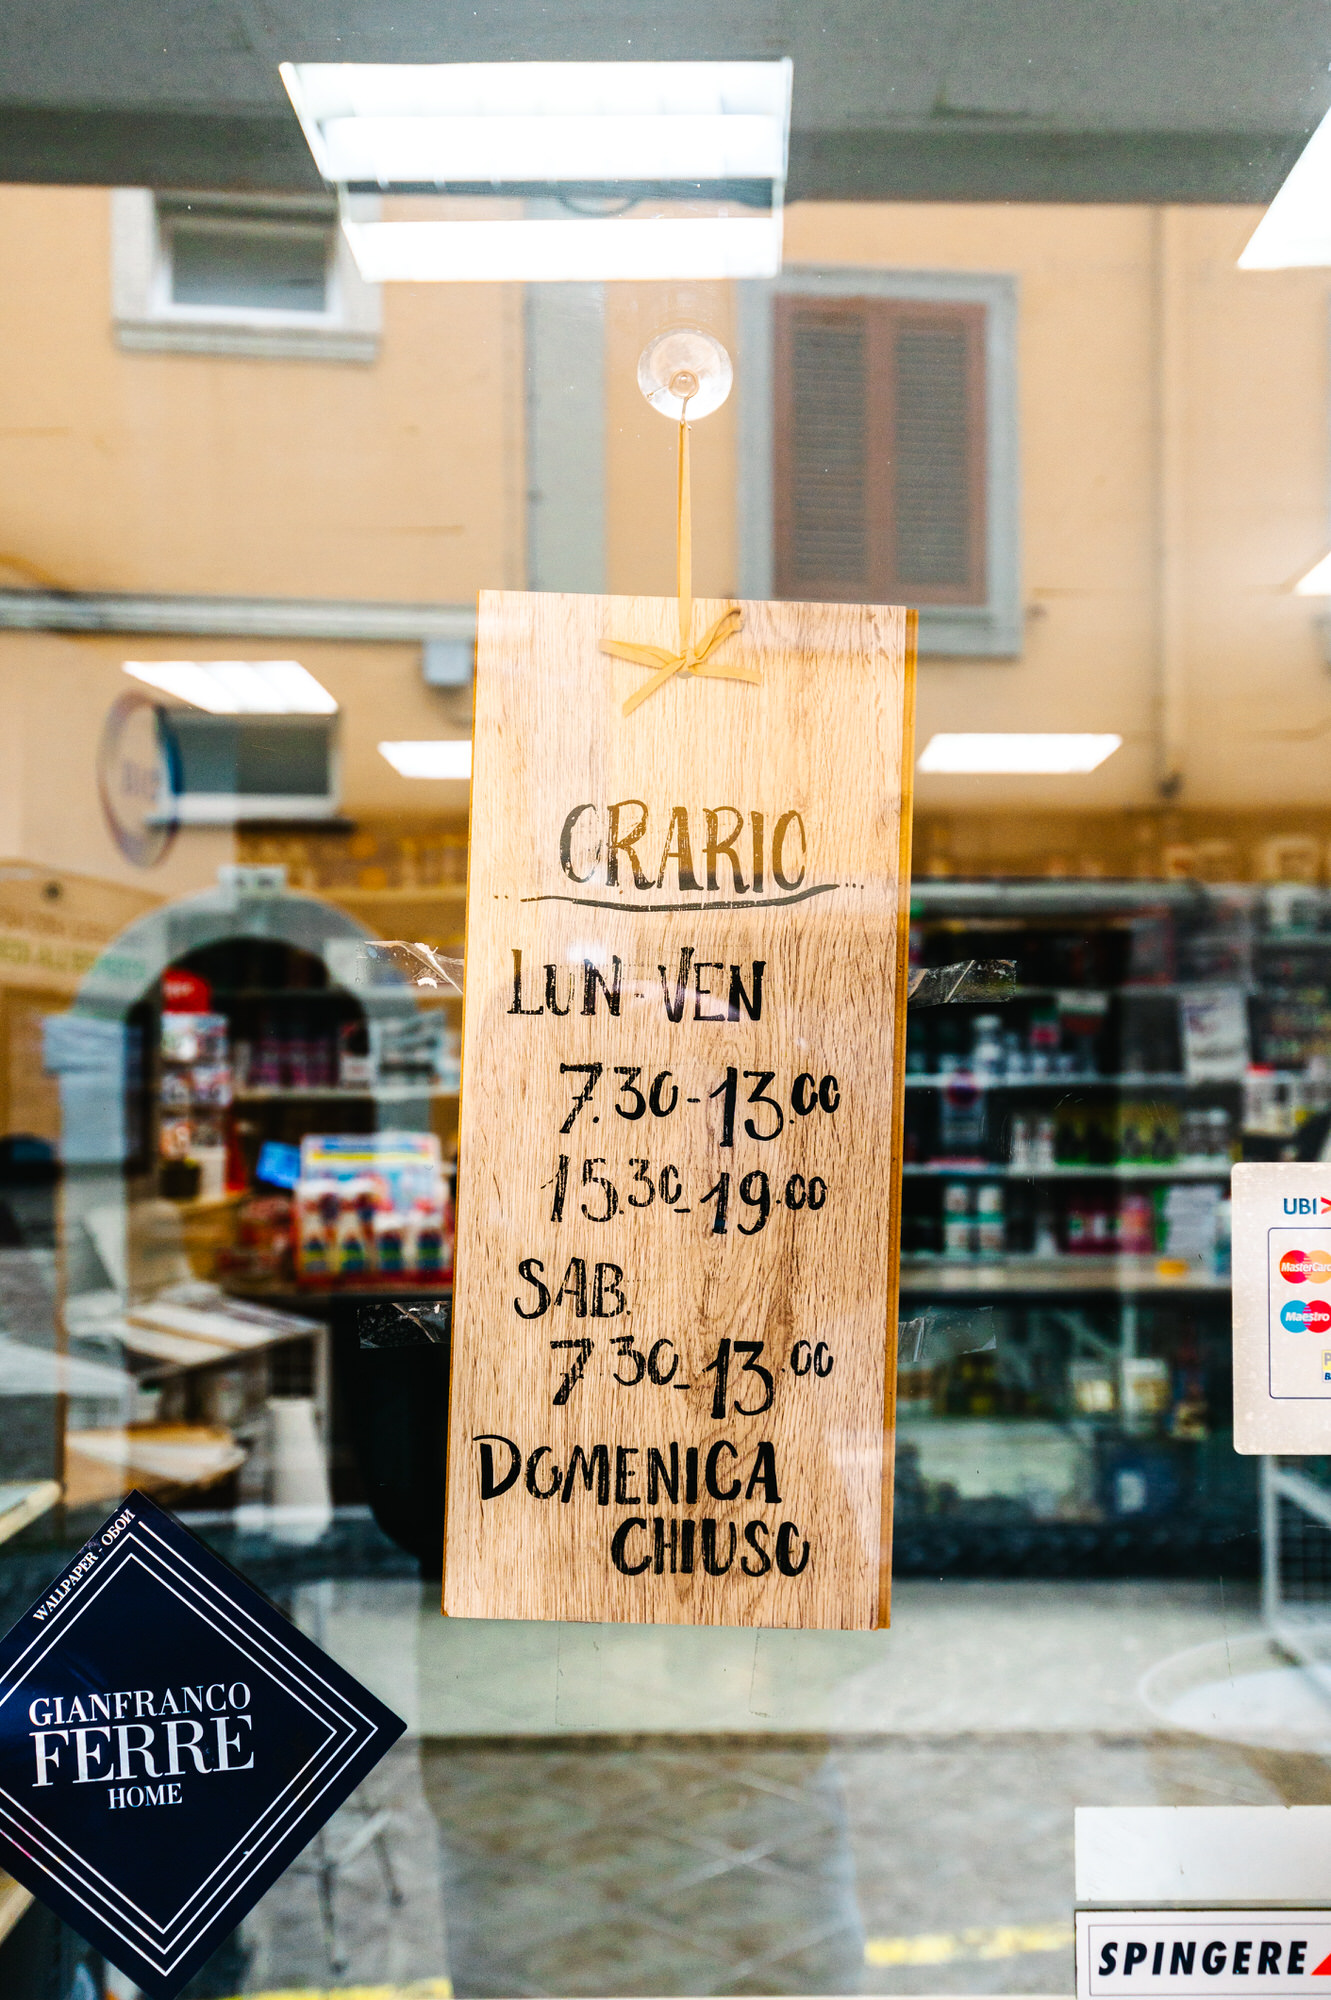 ORARIO
LUN-VEN
7.30-13.00
15.30-19.00
SAB.
7.30-13.00
DOMENICA
CHIUSO
UBI
MasterCard
Maestro
WALLPAPER - ОБОИ
GIANFRANCO
FERRE
HOME
SPINGERE